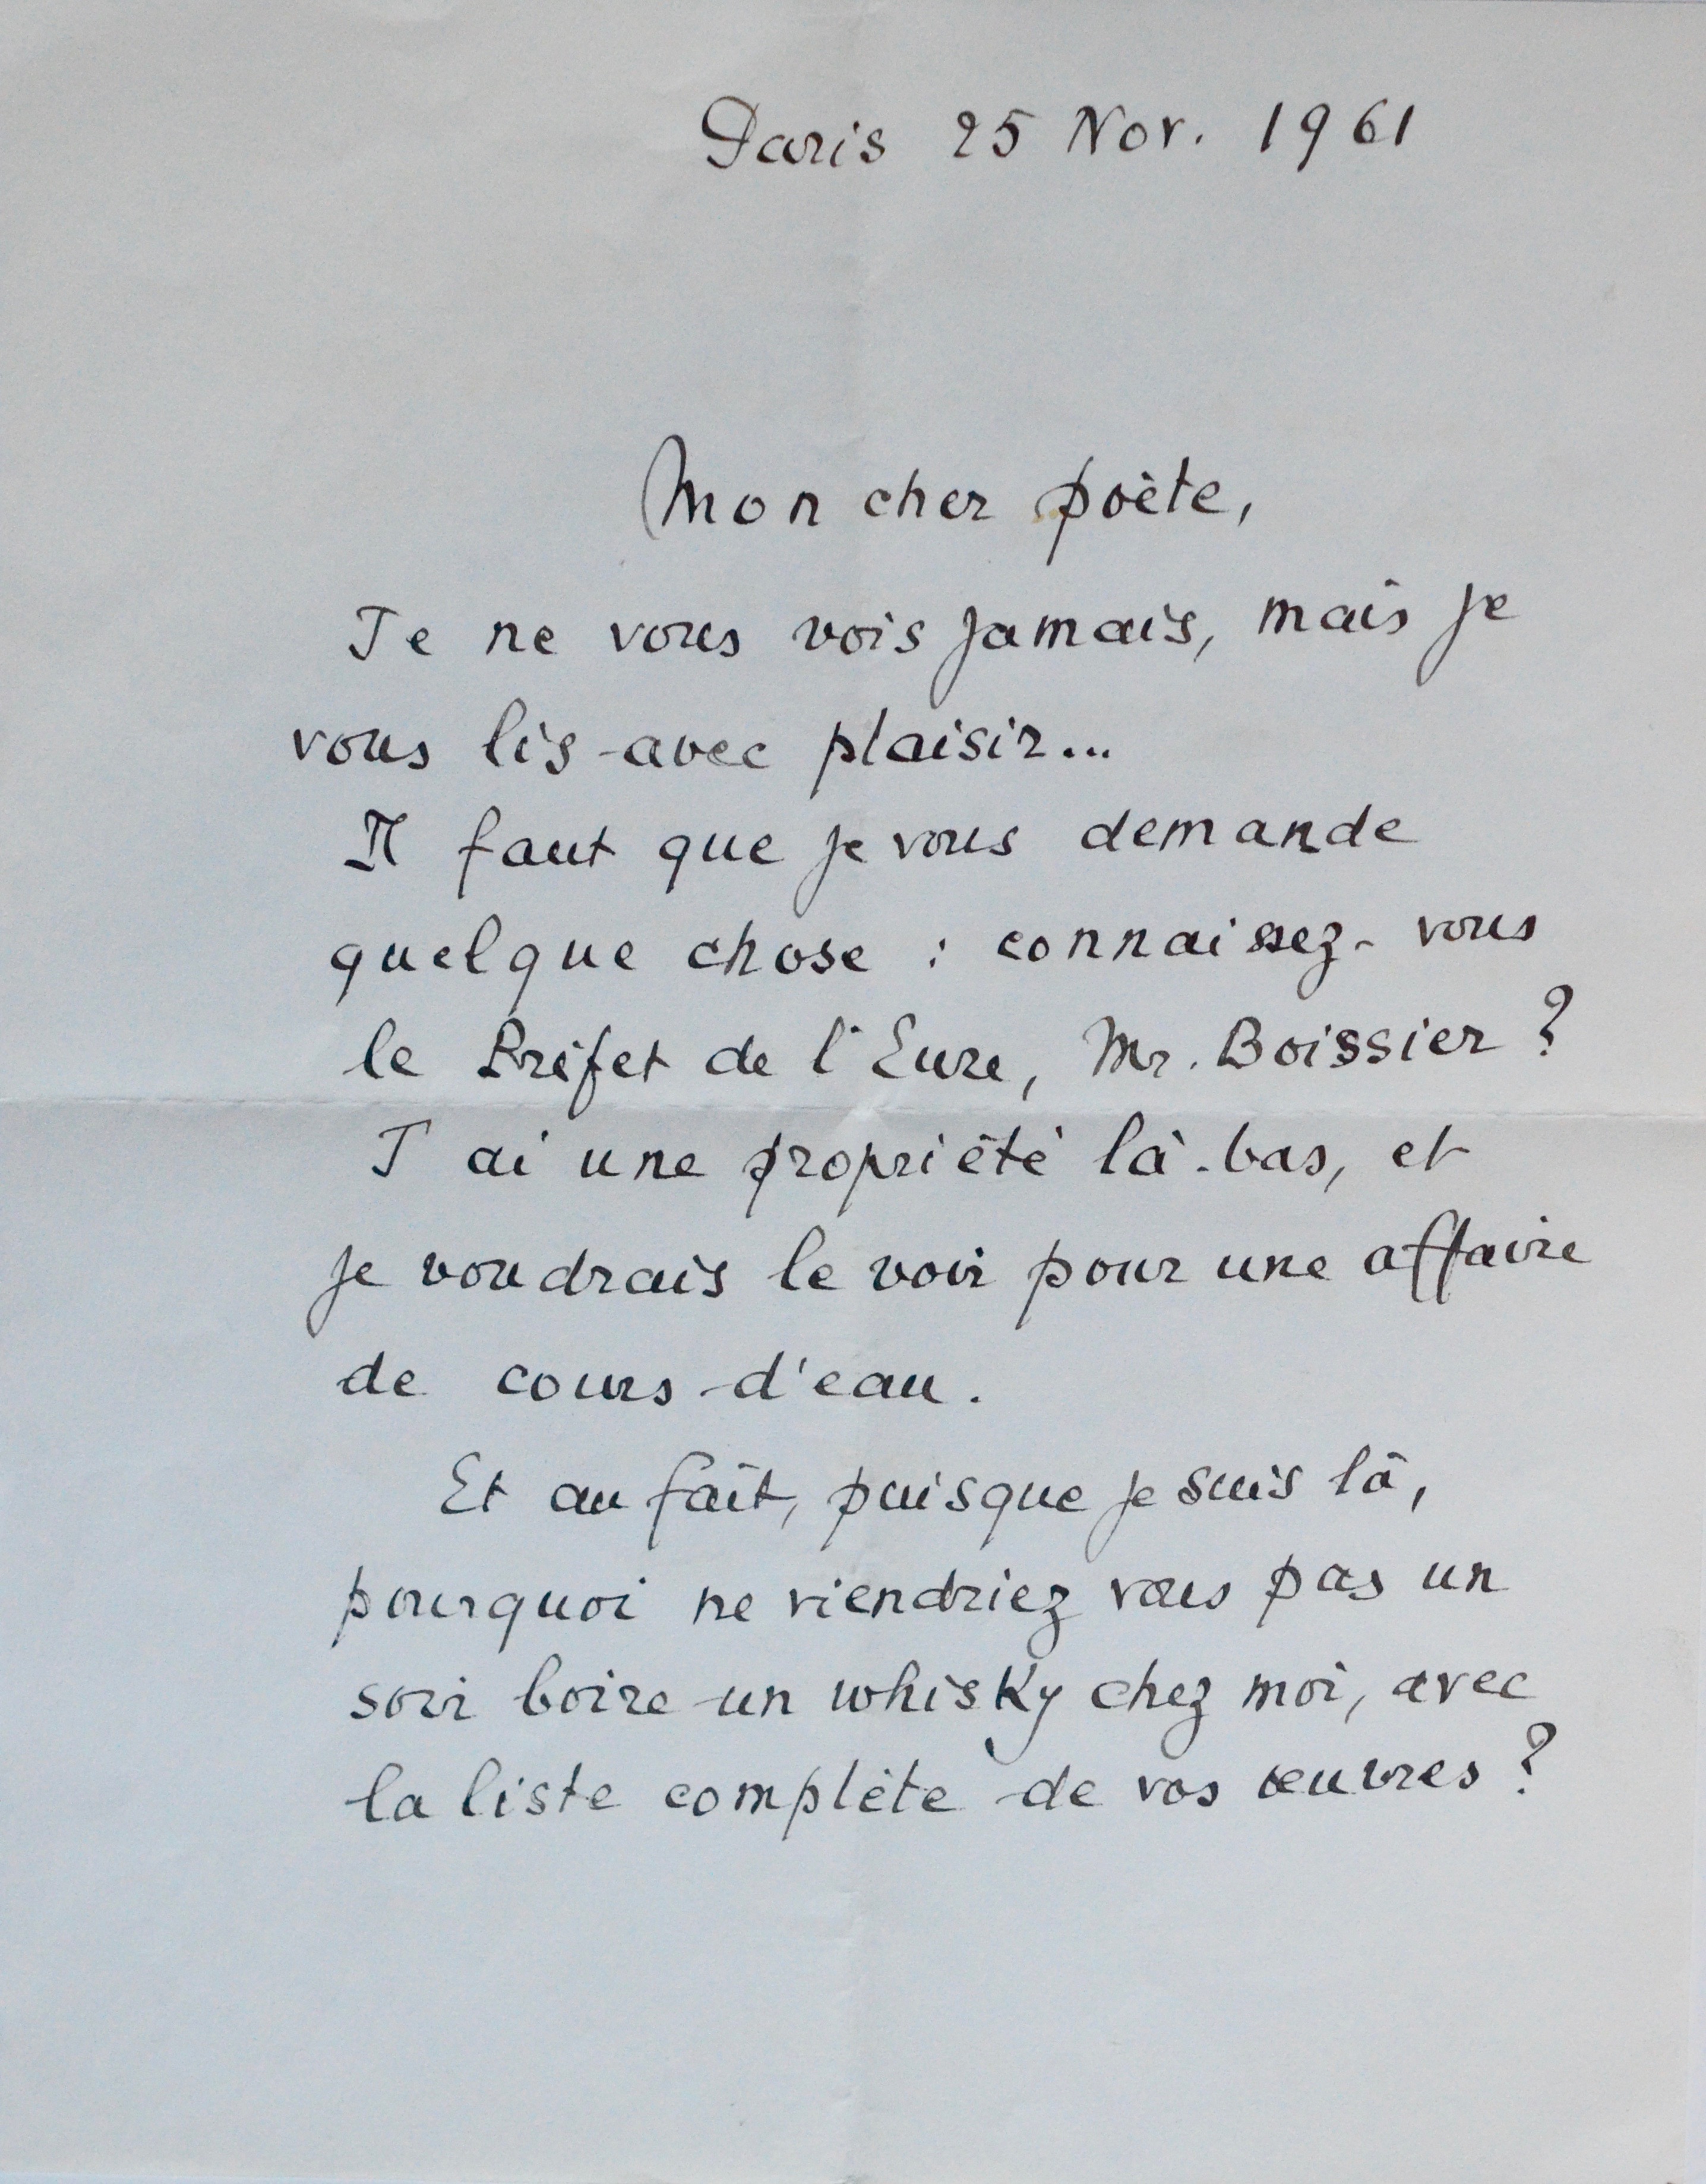 Paris 25 Nov. 1961
Mon cher poète,
Je ne vous vois jamais, mais je
vous lis avec plaisir...
Il faut que je vous demande
quelque chose : connaissez-vous
le Préfet de l'Eure, Mr. Boissier ?
J'ai une propriété là-bas, et
je voudrais le voir pour une affaire
de cours d'eau.
Et au fait, puisque je suis là,
pourquoi ne viendriez vous pas un
soir boire un whisky chez moi, avec
la liste complète de vos œuvres ?